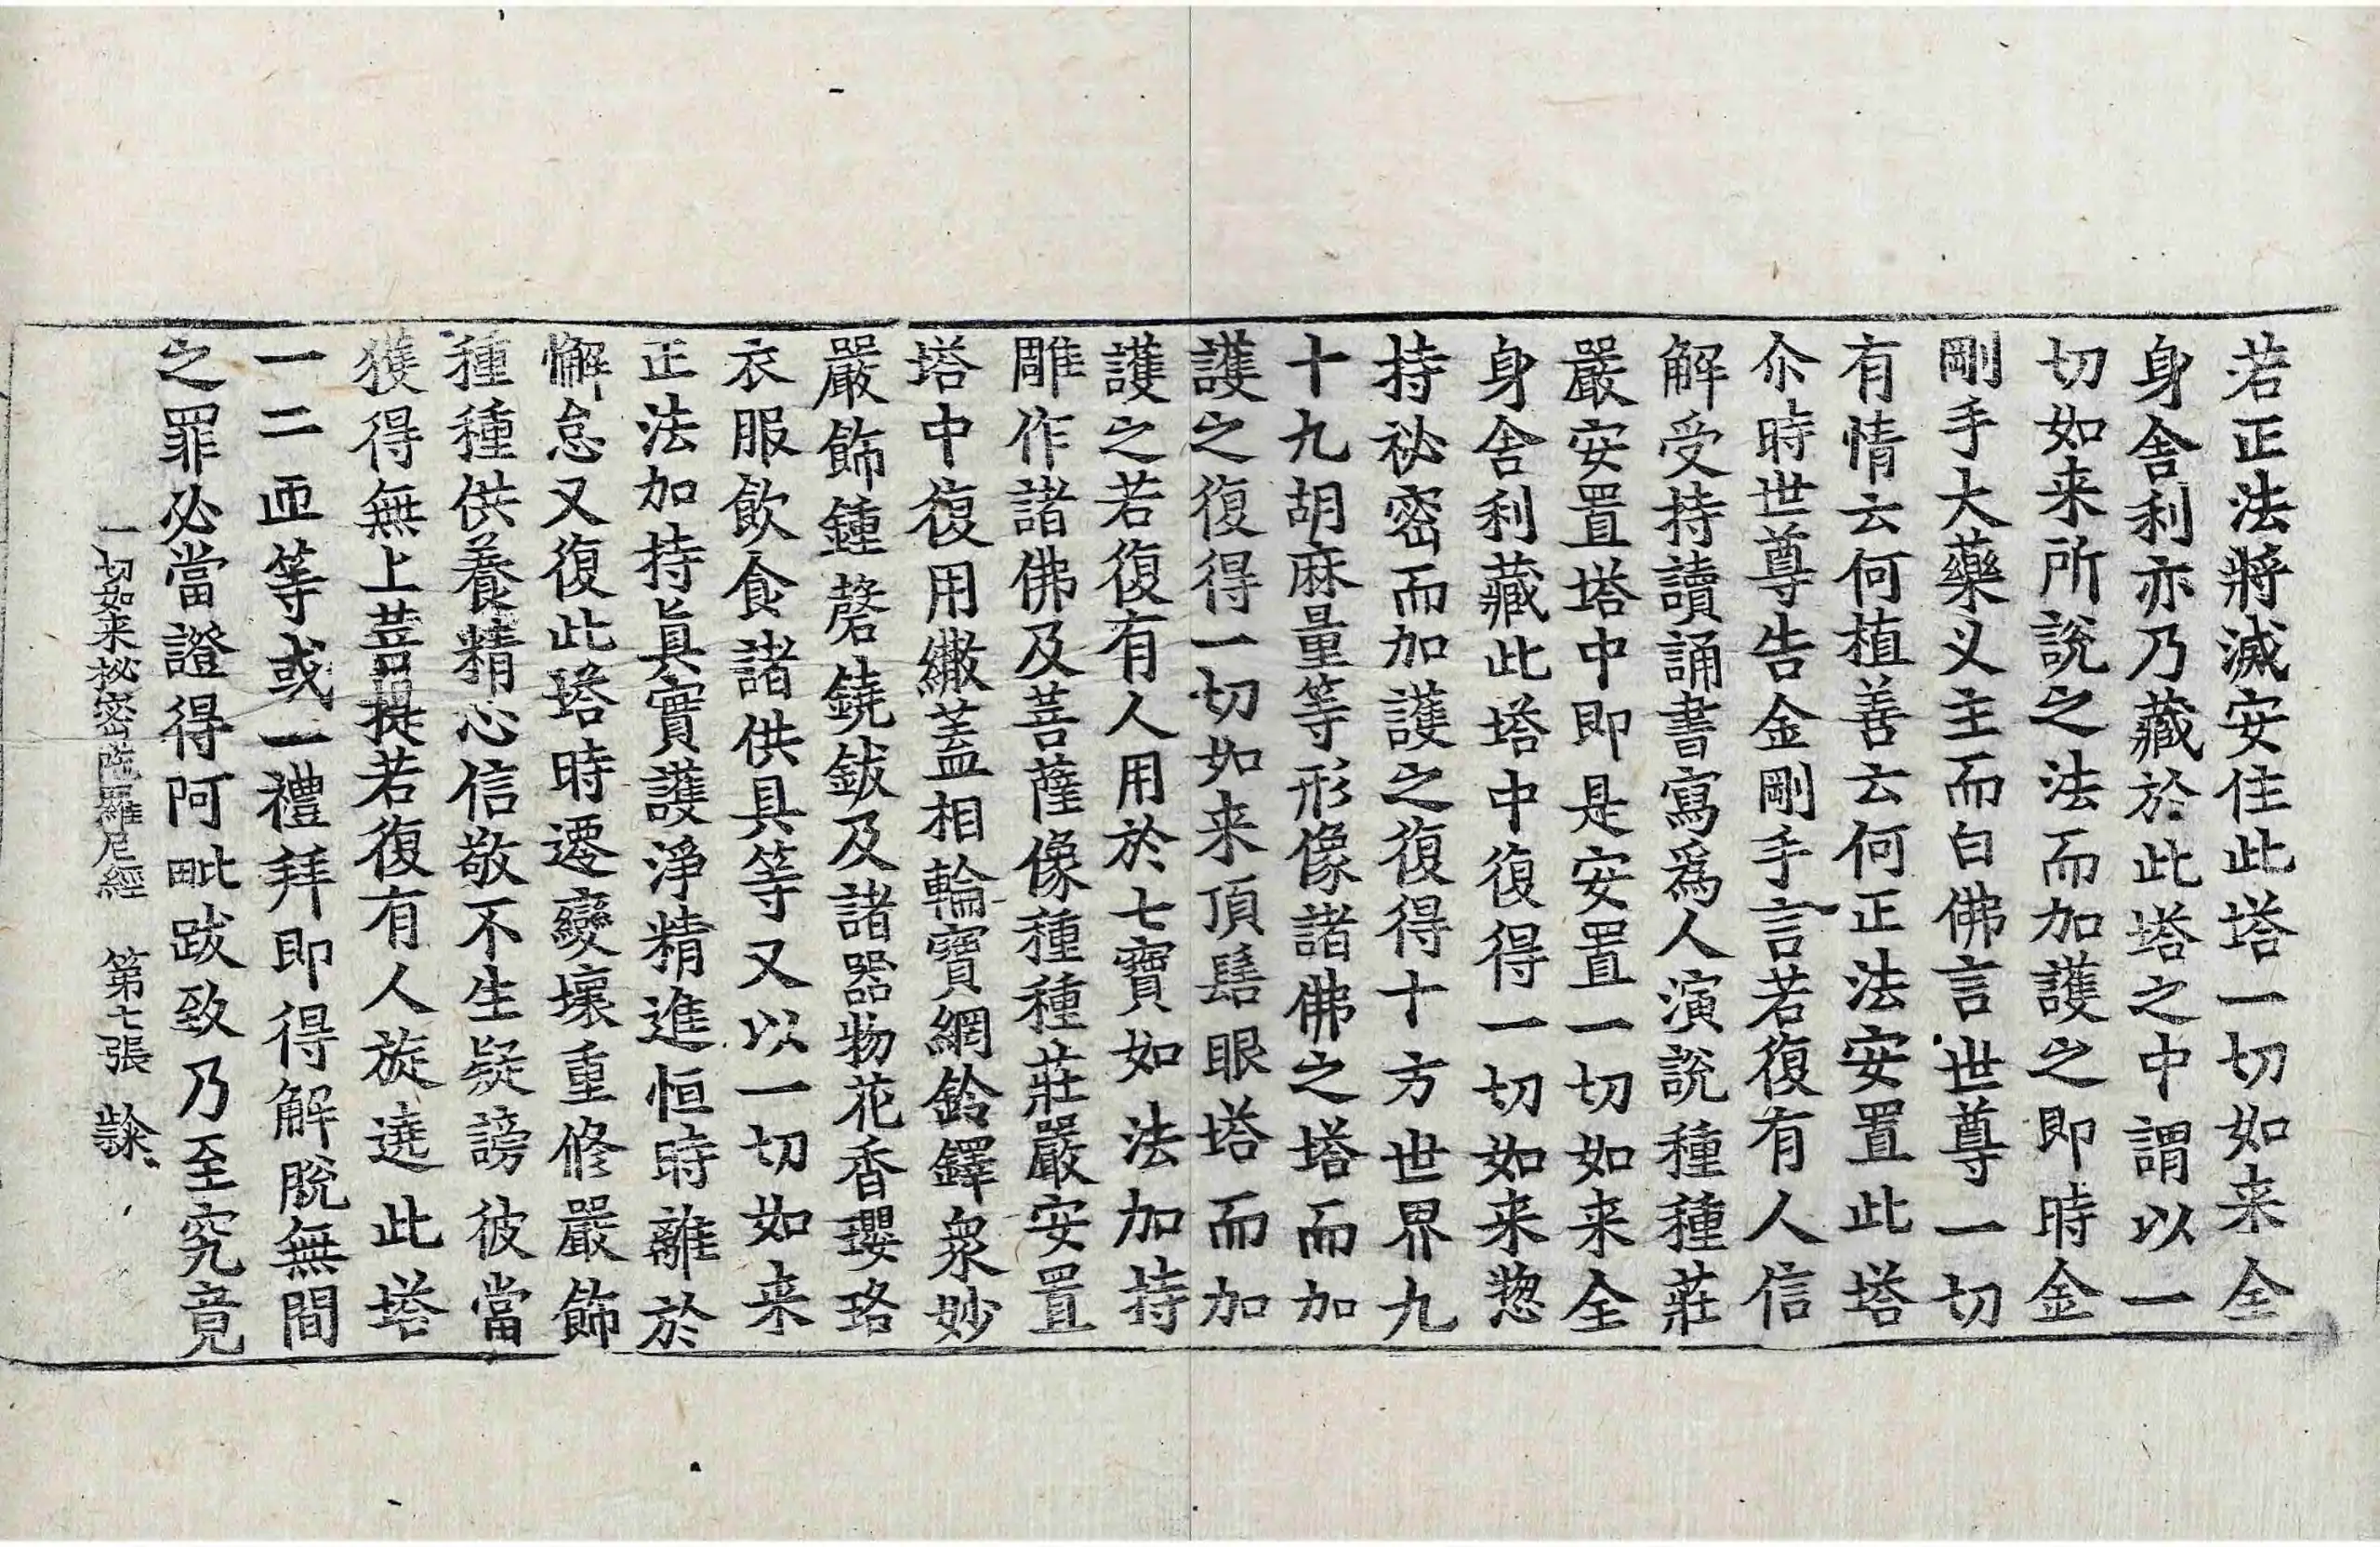 若正法將滅安住此塔一切如来全
身舎利亦乃藏於此塔之中謂以一
切如来所說之法而加護之即時金
剛手大藥叉主而白佛言世尊一切
有情云何植善云何正法安置此塔
尒時世尊告金剛手言若復有人信
解受持讀誦書寫爲人演說種種莊
嚴安置塔中即是安置一切如来全
身舎利藏此塔中復得一切如来惣
持祕密而加護之復得十方世界九
十九胡麻量等形像諸佛之塔而加
護之復得一切如来頂髻眼塔而加
護之若復有人用於七寶如法加持
雕作諸佛及菩薩像種種莊嚴安置
塔中復用繖盖相輪寶網鈴鐸衆妙
嚴飾鍾磬鐃鈸及諸器物花香瓔珞
衣服飲食諸供具等又以一切如来
正法加持眞實護淨精進恒時離於
懈怠又復此塔時遷變壞重修嚴飾
種種供養精心信敬不生疑謗彼當
獲得無上菩提若復有人旋遶此塔
一二匝等或一禮拜即得解脫無間
之罪必當證得阿毗跋致乃至究竟
一切如来祕密陁羅尼經 第七張